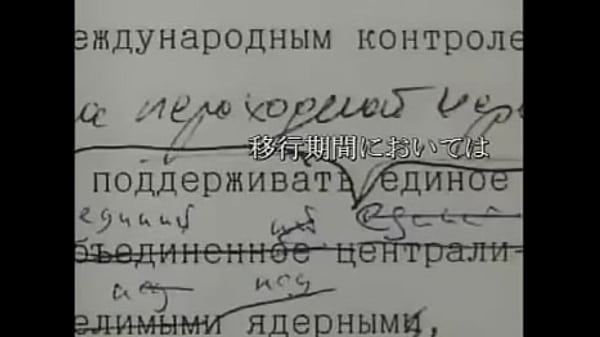 еждународным контроле
на переходной пер
移行期間においては
поддерживать единое
единый
бъединенное централи-
под под
елимыми ядерными,